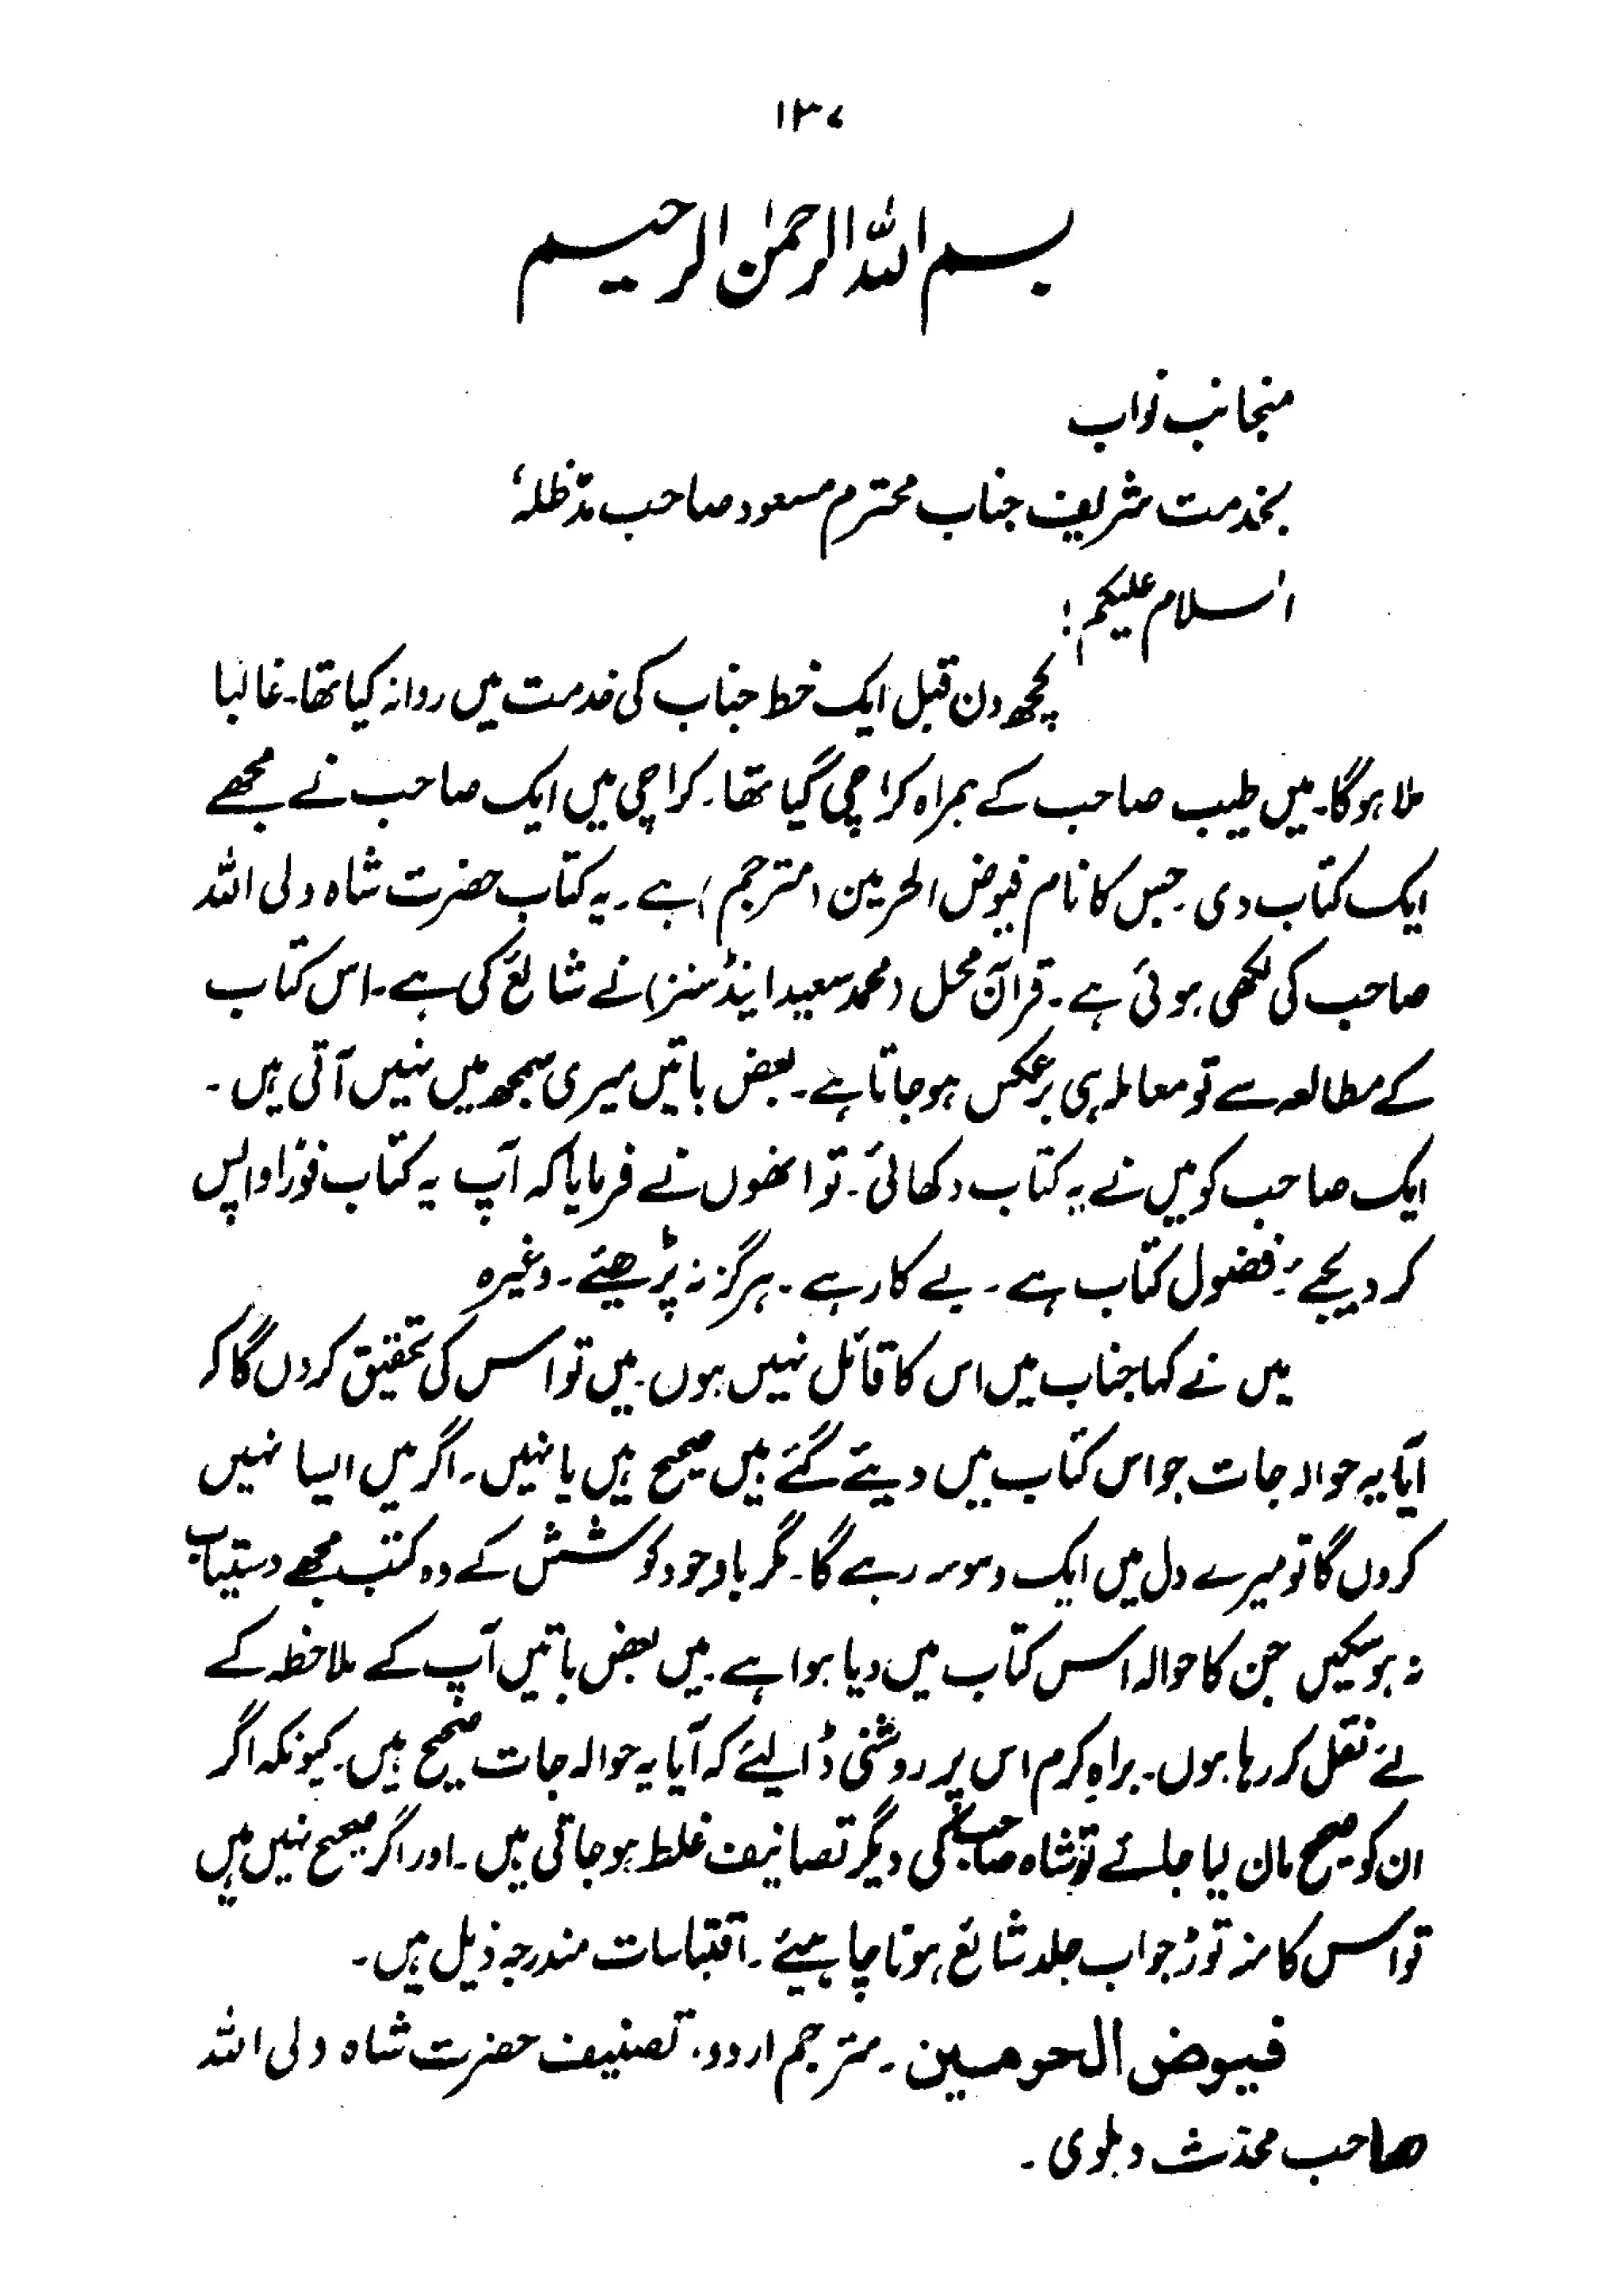 ۱۳۷
بسم اللہ الرحمٰن الرحیم
منجانب نواب
بخدمت شریف جناب محترم مسعود صاحب مدّظلہٗ
السلام علیکم!
کچھ دن قبل ایک خط جناب کی خدمت میں روانہ کیا تھا۔ غالبا
ملا ہوگا۔ میں طیب صاحب کے ہمراہ کراچی گیا تھا۔ کراچی میں ایک صاحب نے مجھے
ایک کتاب دی۔ جس کا نام فیوض الحرمین (مترجم) ہے۔ یہ کتاب حضرت شاہ ولی اللہ
صاحب کی لکھی ہوئی ہے۔ قرآن محل (محمد سعید اینڈ سنز) نے شائع کی ہے۔ اس کتاب
کے مطالعہ سے تو معاملہ ہی برعکس ہو جاتا ہے۔ بعض باتیں میری سمجھ میں نہیں آتی ہیں۔
ایک صاحب کو میں نے یہ کتاب دکھائی۔ تو انھوں نے فرمایا کہ آپ یہ کتاب فوراً واپس
کر دیجئے۔ فضول کتاب ہے۔ بے کار ہے۔ ہرگز نہ پڑھئے۔ وغیرہ
میں نے کہا جناب میں اس کا قائل نہیں ہوں۔ میں تو اس کی تحقیق کروں گا کہ
آیا یہ حوالہ جات جو اس کتاب میں دیئے گئے ہیں صحیح ہیں یا نہیں۔ اگر میں ایسا نہیں
کروں گا تو میرے دل میں ایک وسوسہ رہے گا۔ مگر باوجود کوشش کے وہ کتب مجھے دستیاب
نہ ہو سکیں جن کا حوالہ اس کتاب میں دیا ہوا ہے۔ میں بعض باتیں آپ کے ملاحظہ کے
لئے نقل کر رہا ہوں۔ براہِ کرم اس پر روشنی ڈالیئے کہ آیا یہ حوالہ جات صحیح ہیں۔ کیونکہ اگر
ان کو صحیح مان لیا جائے تو شاہ صاحب کی دیگر تصانیف غلط ہو جاتی ہیں۔ اور اگر صحیح نہیں ہیں
تو اس کا منہ توڑ جواب جلد شائع ہونا چاہیئے۔ اقتباسات مندرجہ ذیل ہیں۔
فیوض الحرمین۔ مترجم اردو۔ تصنیف حضرت شاہ ولی اللہ
صاحب محدّث دہلوی۔